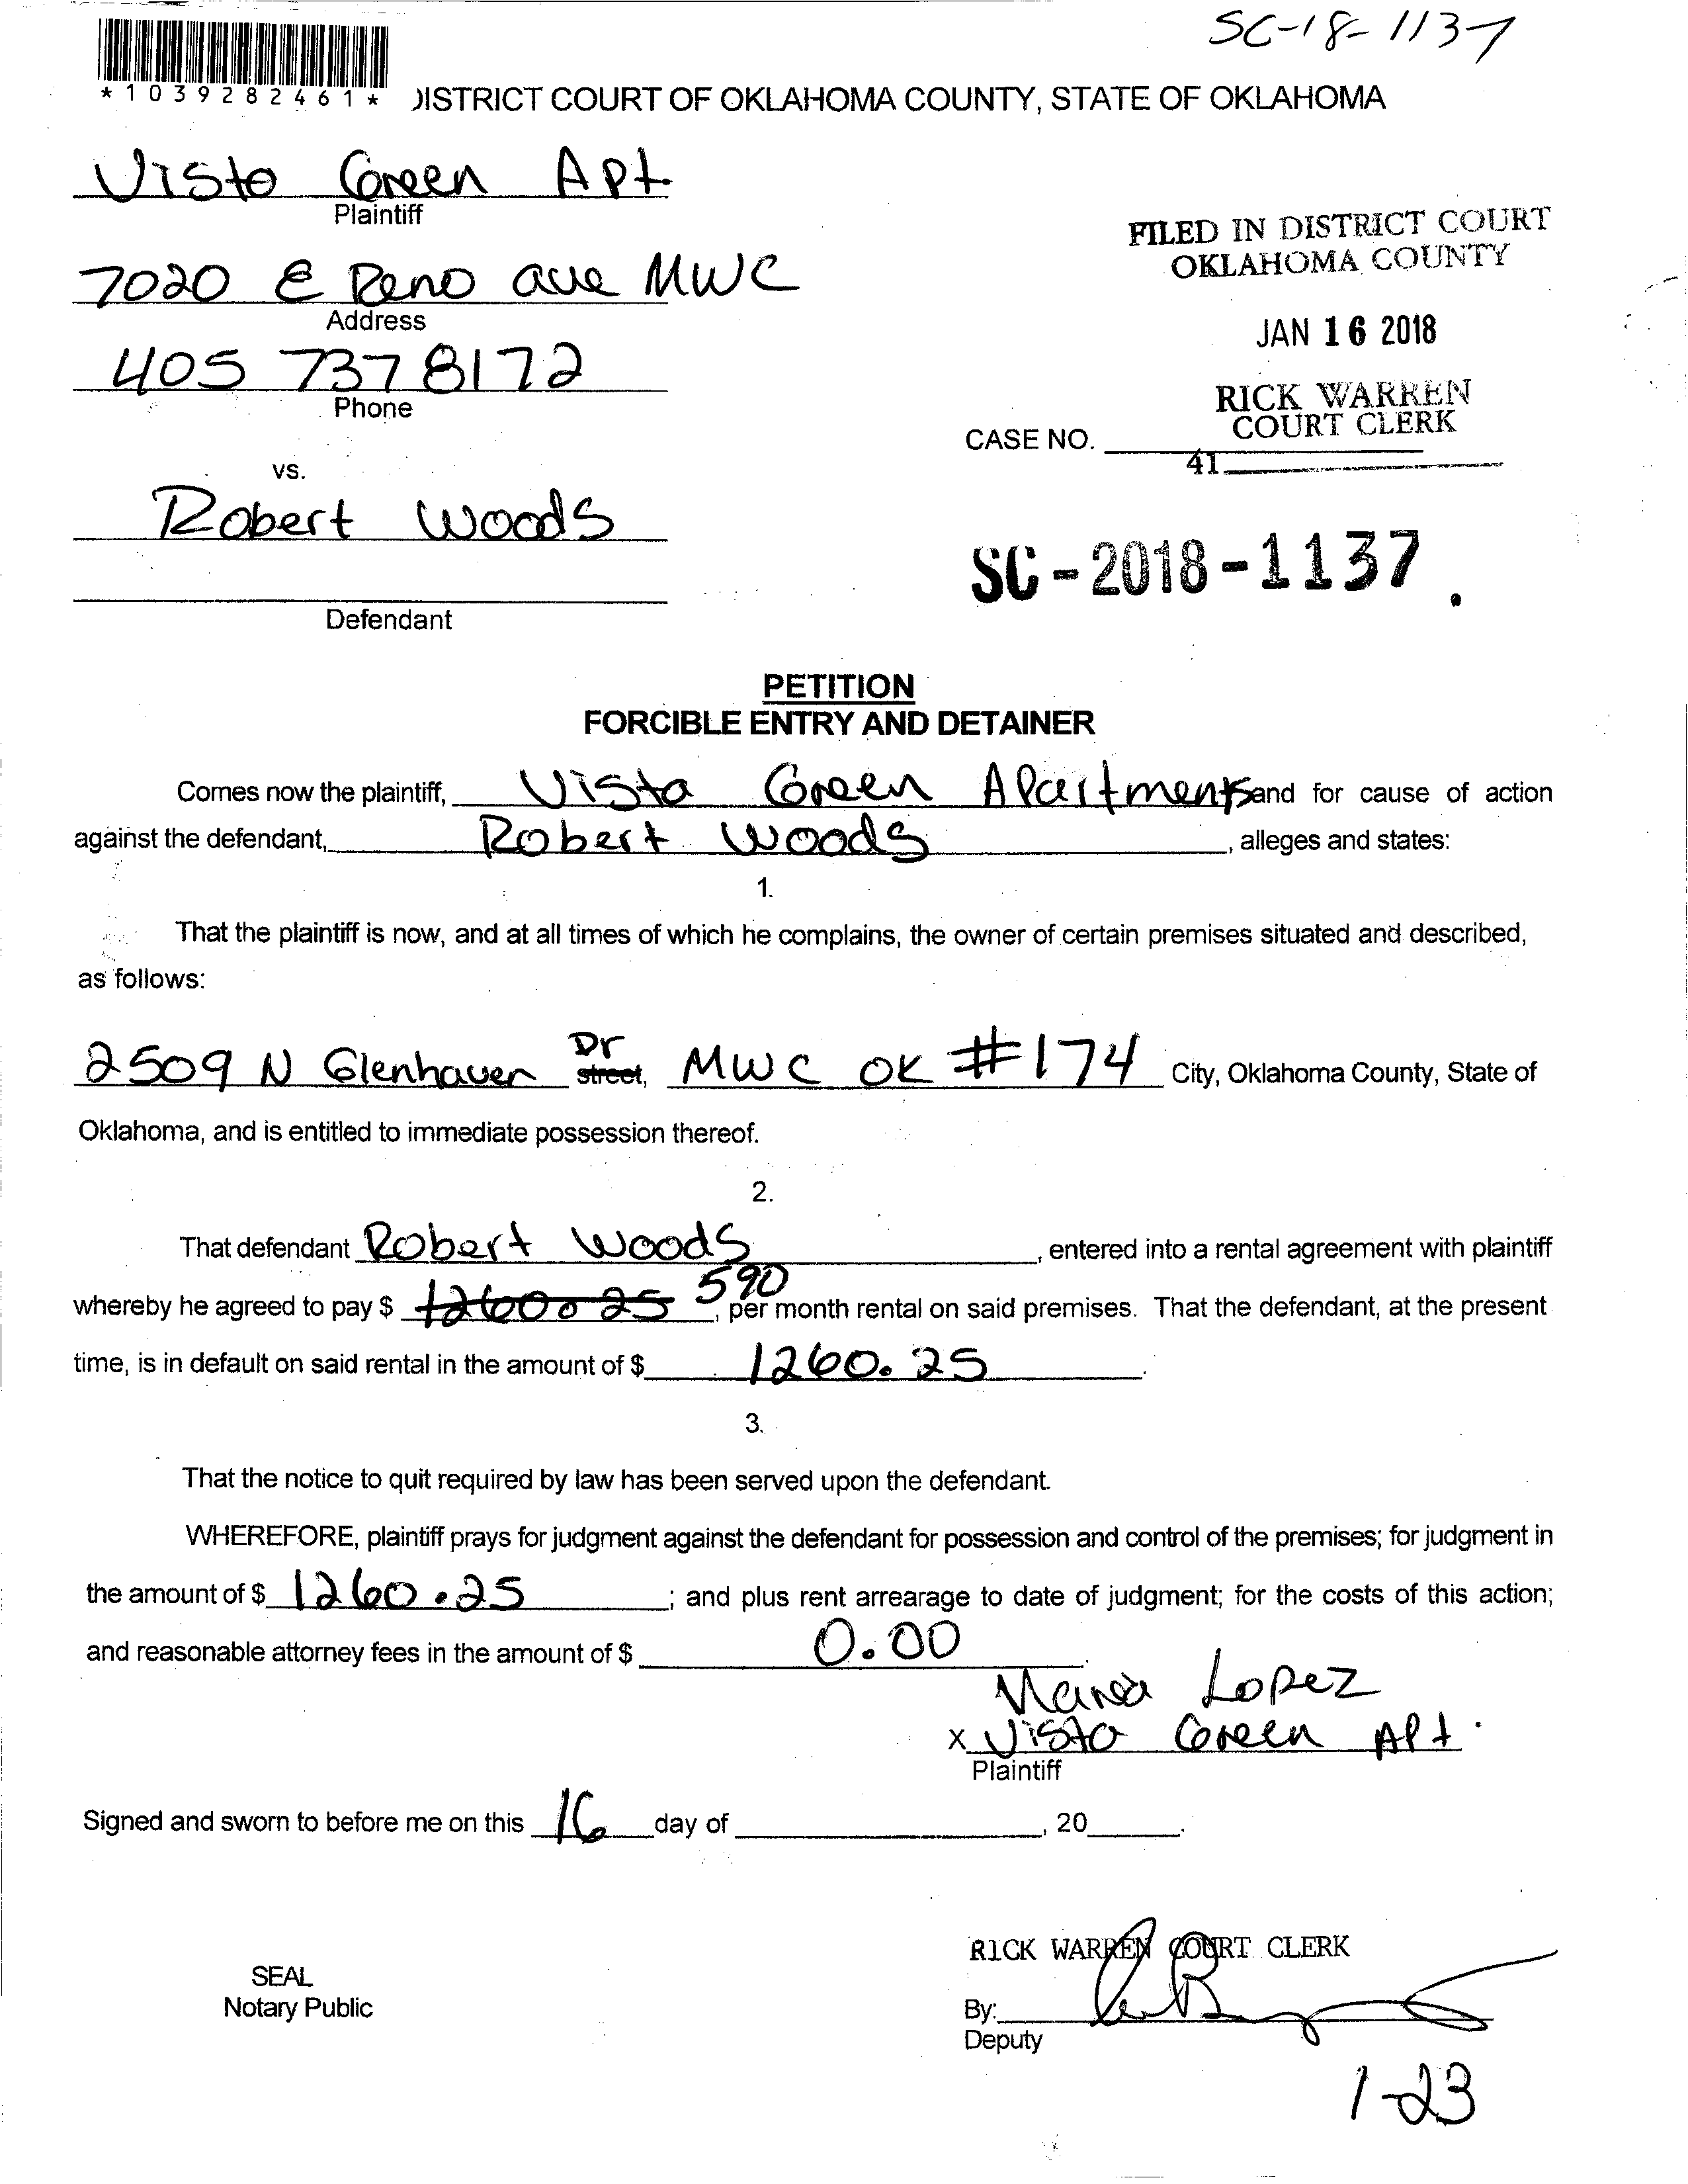 SC-18-1137
*1039282461*
DISTRICT COURT OF OKLAHOMA COUNTY, STATE OF OKLAHOMA
Vista Green Apt
Plaintiff
7020 E Reno ave MWC
Address
405 737 8172
Phone
vs.
Robert Woods
Defendant
FILED IN DISTRICT COURT
OKLAHOMA COUNTY
JAN 16 2018
RICK WARREN
COURT CLERK
CASE NO.
41
SC-2018-1137.
PETITION
FORCIBLE ENTRY AND DETAINER
Comes now the plaintiff, Vista Green Apartments and for cause of action
against the defendant, Robert Woods, alleges and states:
1.
That the plaintiff is now, and at all times of which he complains, the owner of certain premises situated and described,
as follows:
2509 N Glenhaven Dr street, MWC OK #174 City, Oklahoma County, State of
Oklahoma, and is entitled to immediate possession thereof.
2.
That defendant Robert Woods, entered into a rental agreement with plaintiff
whereby he agreed to pay $ 1260.25 590, per month rental on said premises. That the defendant, at the present
time, is in default on said rental in the amount of $ 1260.25.
3.
That the notice to quit required by law has been served upon the defendant.
WHEREFORE, plaintiff prays for judgment against the defendant for possession and control of the premises; for judgment in
the amount of $ 1260.25; and plus rent arrearage to date of judgment; for the costs of this action;
and reasonable attorney fees in the amount of $ 0.00.
Maria Lopez
X Vista Green Apt.
Plaintiff
Signed and sworn to before me on this 16 day of, 20.
SEAL
Notary Public
RICK WARREN COURT CLERK
By:
Deputy
1-23